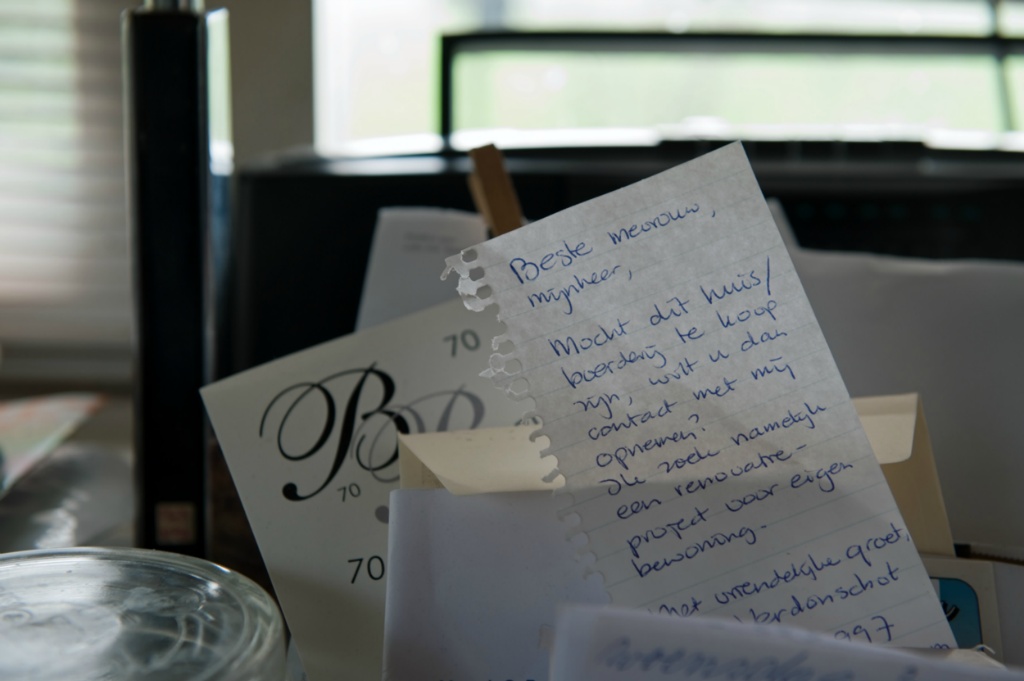 Beste mevrouw,
mijnheer,
Mocht dit huis/
boerderij te koop
zijn, wilt u dan
contact met mij
opnemen?
Ik zoek namelijk
een renovatie-
project voor eigen
bewoning.
Met vriendelijke groet,
erdonschot
997
70
B
B
70
70